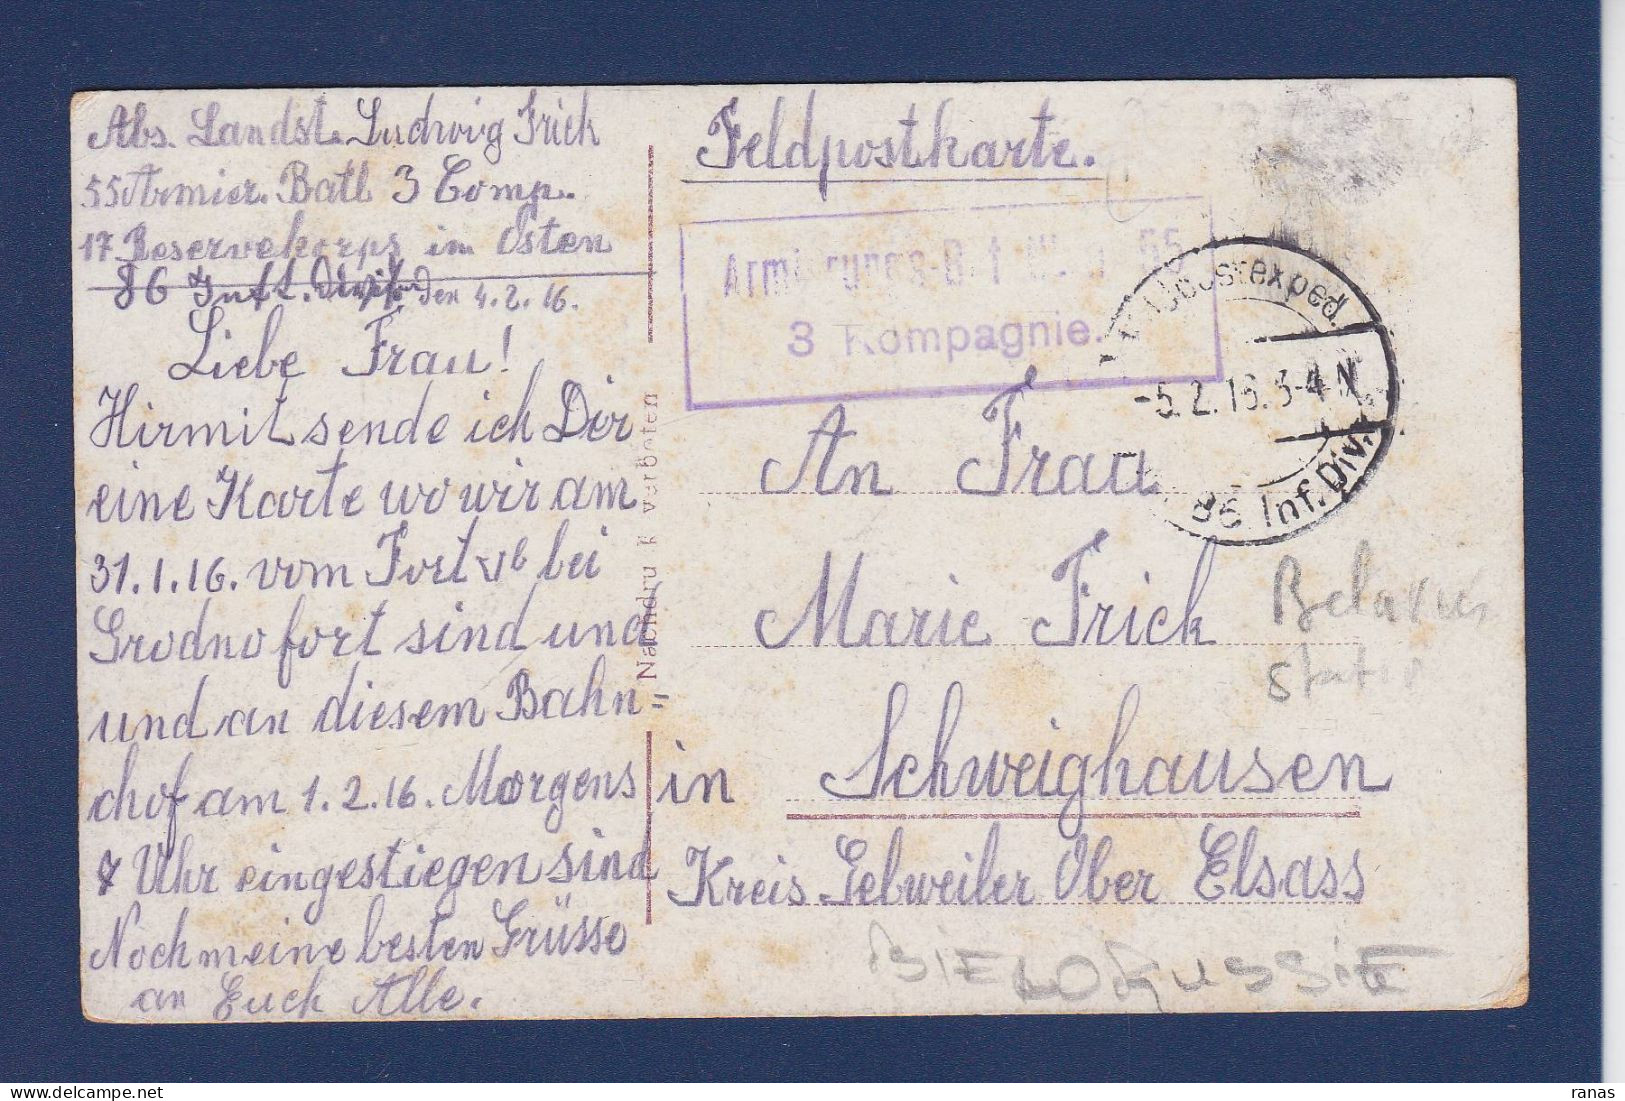 Abs. Landst. Ludwig Frick
55 Armier. Batl 3 Comp.
17 Reservekorps im Osten
86 Inft. Divis. den 4.2.16.
Liebe Frau!
Hirmit sende ich Dir
eine Karte wo wir am
31.1.16. vom Fort bei
Grodno fort sind und
und an diesem Bahn=
chof am 1.2.16. Morgens
Uhr eingestiegen sind
Noch meine besten Grüsse
an Euch Alle.
Feldpostkarte.
3 Kompagnie.
-5.2.16.3-4 N
86. Inf. Div.
An Frau
Marie Frick
in Schweighausen
Kreis Gebweiler Ober Elsass
Belarus
station
BIELORUSSIE
verboten
ranas